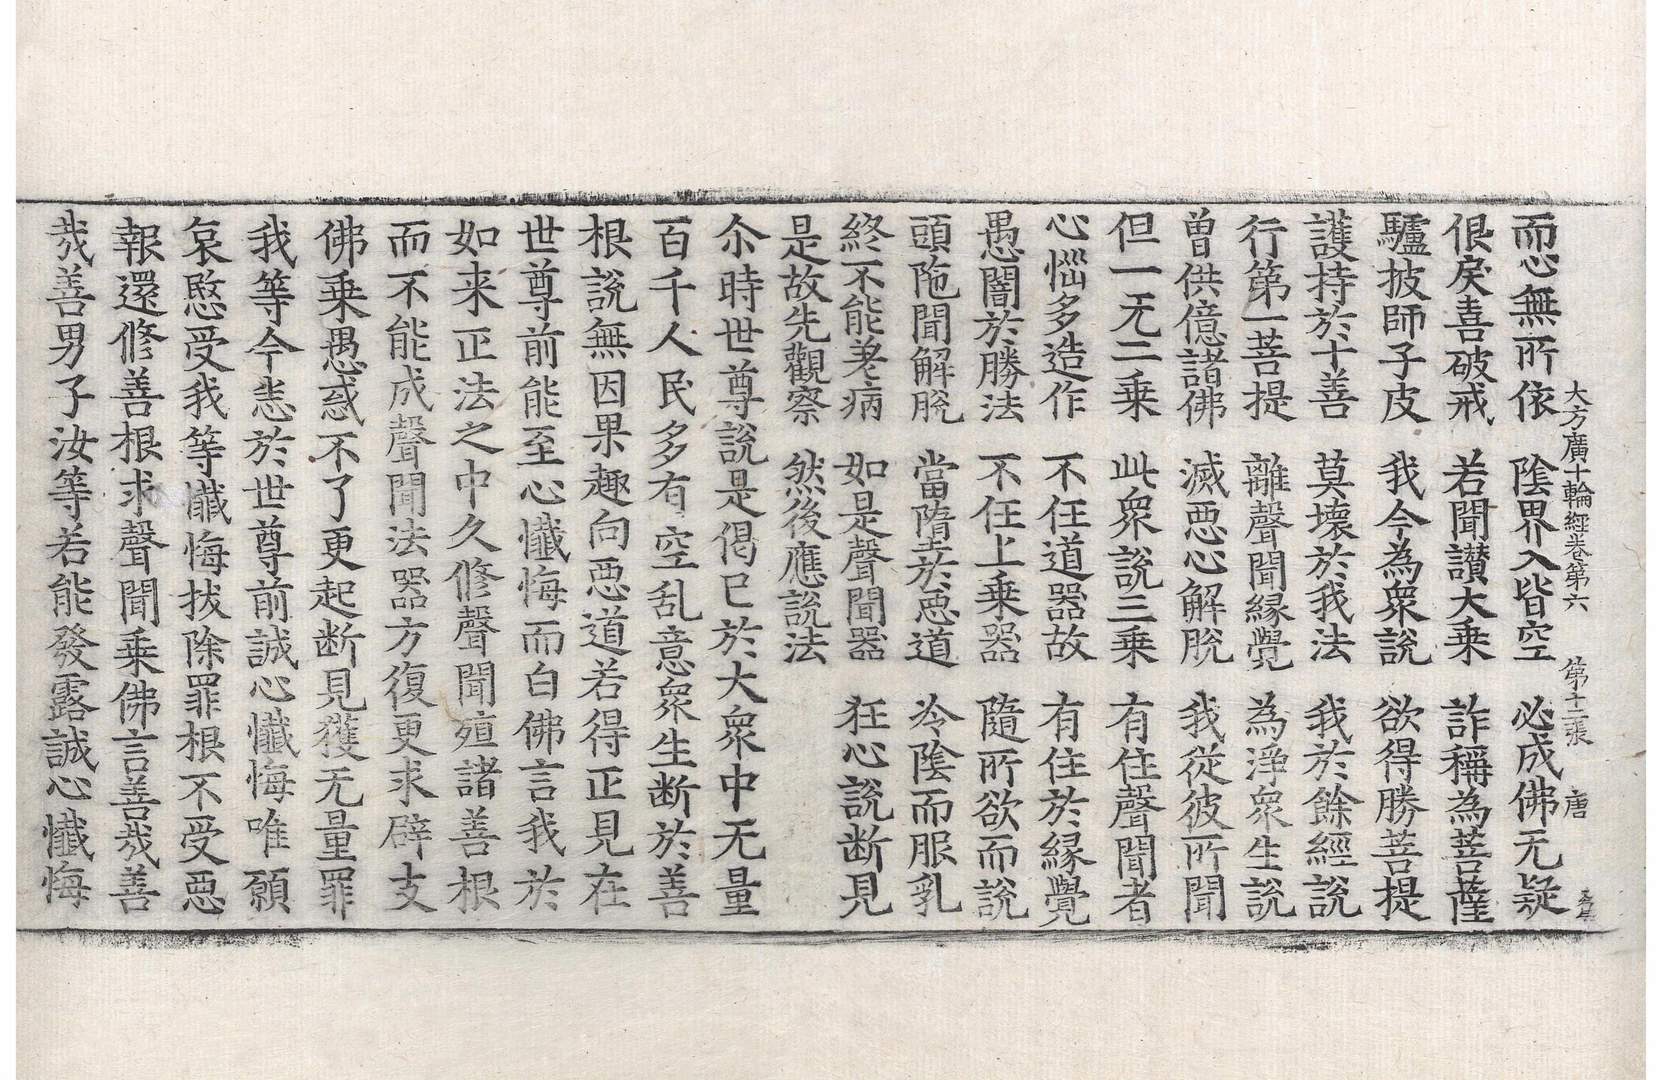 大方廣十輪經卷第六　第十二張　唐
而心無所依　陰界入皆空　必成佛无疑
佷戾喜破戒　若聞讃大乗　詐稱為菩薩
驢披師子皮　我今為衆說　欲得勝菩提
護持於十善　莫壞於我法　我於餘經說
行第一菩提　離聲聞縁覺　為淨衆生說
曽供億諸佛　滅惡心解脫　我從彼所聞
但一无二乗　此衆說三乗　有住聲聞者
心惱多造作　不任道器故　有住於縁覺
愚闇於勝法　不任上乗器　隨所欲而說
頭陁聞解脫　當墮於惡道　冷陰而服乳
終不能差病　如是聲聞器　狂心說断見
是故先觀察　然後應說法
尒時世尊說是偈已於大衆中无量
百千人民多有空乱意衆生断於善
根說無因果趣向惡道若得正見在
世尊前能至心懺悔而白佛言我於
如来正法之中久修聲聞殖諸善根
而不能成聲聞法器方復更求辟支
佛乗愚惑不了更起断見獲无量罪
我等今悉於世尊前誠心懺悔唯願
哀愍受我等懺悔拔除罪根不受惡
報還修善根求聲聞乗佛言善哉善
哉善男子汝等若能發露誠心懺悔